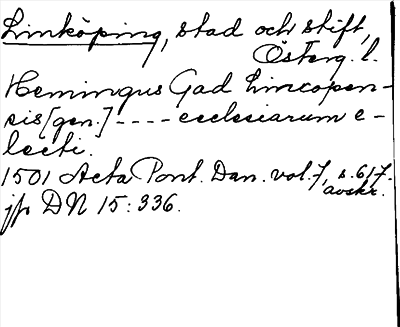 Linköping, stad och stift,
Österg. l.
Hemingus Gad Lincopen-
sis [gen.] - - - - ecclesiarum e-
lecti.
1501 Acta Pont. Dan. vol. 7, s. 617.
avskr.
jfr DN 15:336.